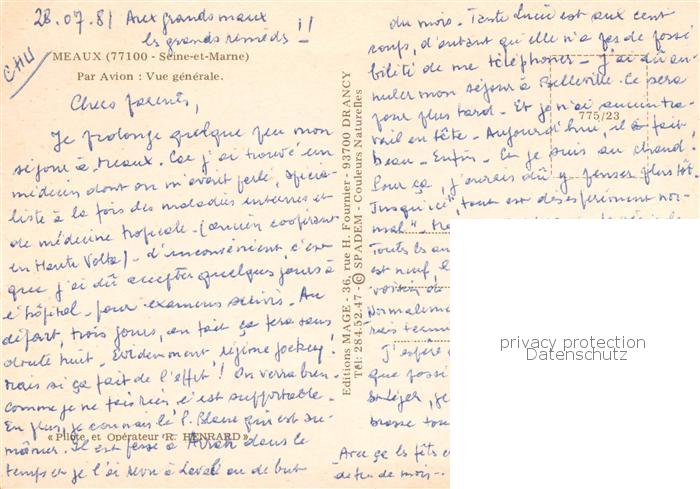 28.07.81 Aux grands maux
les grands remèds !!
CHU
MEAUX (77100 - Seine-et-Marne)
Par Avion : Vue générale.
Chers parents,
Je prolonge quelque peu mon
séjour à Meaux. Car j'ai trouvé un
médecin dont on m'avait parlé, spécia-
liste à la fois des maladies internes et
de médecine tropicale - (ancien coopérant
en Haute Volta) - L'inconvénient, c'est
que j'ai dû accepter quelques jours à
l'hôpital - pour examens suivis - Au
départ, trois jours, en fait ça fera sans
doute huit - Evidemment, régime jockey !
mais si ça fait de l'effet ! On verra bien -
comme je ne fais rien c'est supportable -
En plus, je connais le P. Blanc qui est au-
mônier. Il est passé à dans le
temps et je l'ai revu à Laval au début
« Pilote et Opérateur R. HENRARD »
Editions MAGE - 36, rue H. Fournier - 93700 DRANCY
Tél: 284.52.47 - © SPADEM - Couleurs Naturelles
775/23
du mois - Tante Lucie est aux cent
coups, d'autant qu'elle n'a pas de possi
bilité de me téléphoner - J'ai dû an-
nuler mon séjour à Belleville. Ce sera
pour plus tard - Et je n'ai aucun tra-
vail en tête - Aujourd'hui, il fait
beau - Enfin - Et je suis au chaud.
Pour ça, j'aurais dû y penser plus tôt.
Jusqu'ici, "tout est désespérément nor-
mal"
Toutes les
est neuf, l
voisin de
Normaleme
très
J'espère
que possi
St Léger, je
brasse tou
Avec ça les fêts
de fin de mois --
privacy protection
Datenschutz